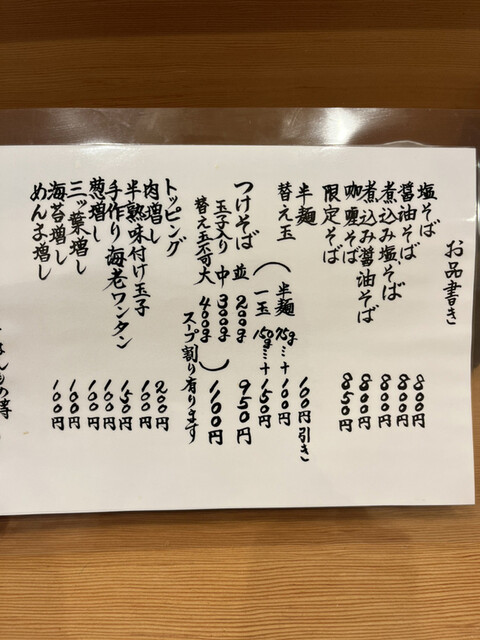 お品書き
塩そば 800円
醤油そば 800円
煮込み塩そば 800円
煮込み醤油そば 800円
咖喱そば 850円
限定そば
半麺 100円引き
替え玉（半麺 75g…+100円
一玉 150g…+150円）
つけそば 並 200g 950円
玉子入り 中 300g 1100円
替え玉不可 大 400g
スープ割り有ります
トッピング
肉増し 200円
半熟味付け玉子 100円
手作り海老ワンタン 150円
葱増し 100円
三ッ葉増し 100円
海苔増し 100円
めんま増し 100円